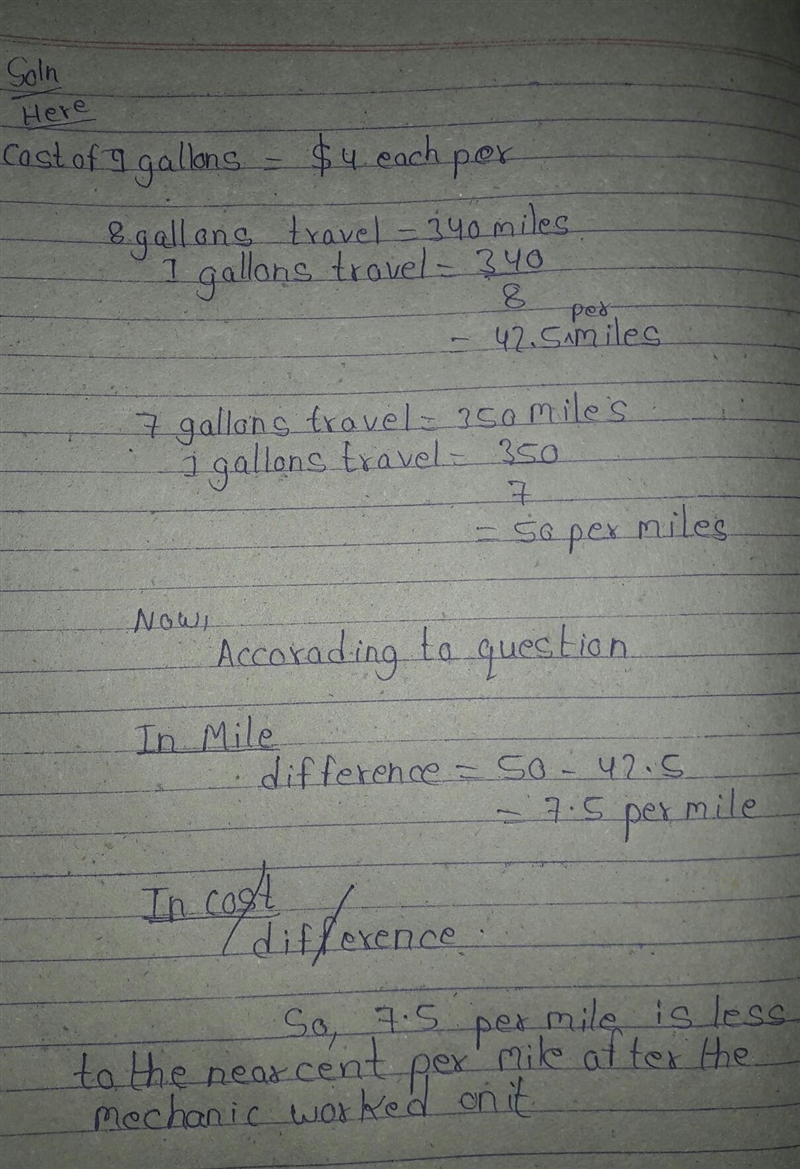 Soln
Here
Cost of 1 gallons = $4 each per
8 gallons travel = 340 miles
1 gallons travel = 340
8
per
= 42.5^miles
7 gallons travel = 350 miles
1 gallons travel = 350
7
= 50 per miles
Now,
Accorading to question
In Mile
difference = 50 - 42.5
= 7.5 per mile
In cost
difference
So, 7.5 per mile is less
to the near cent per mile after the
mechanic worked on it